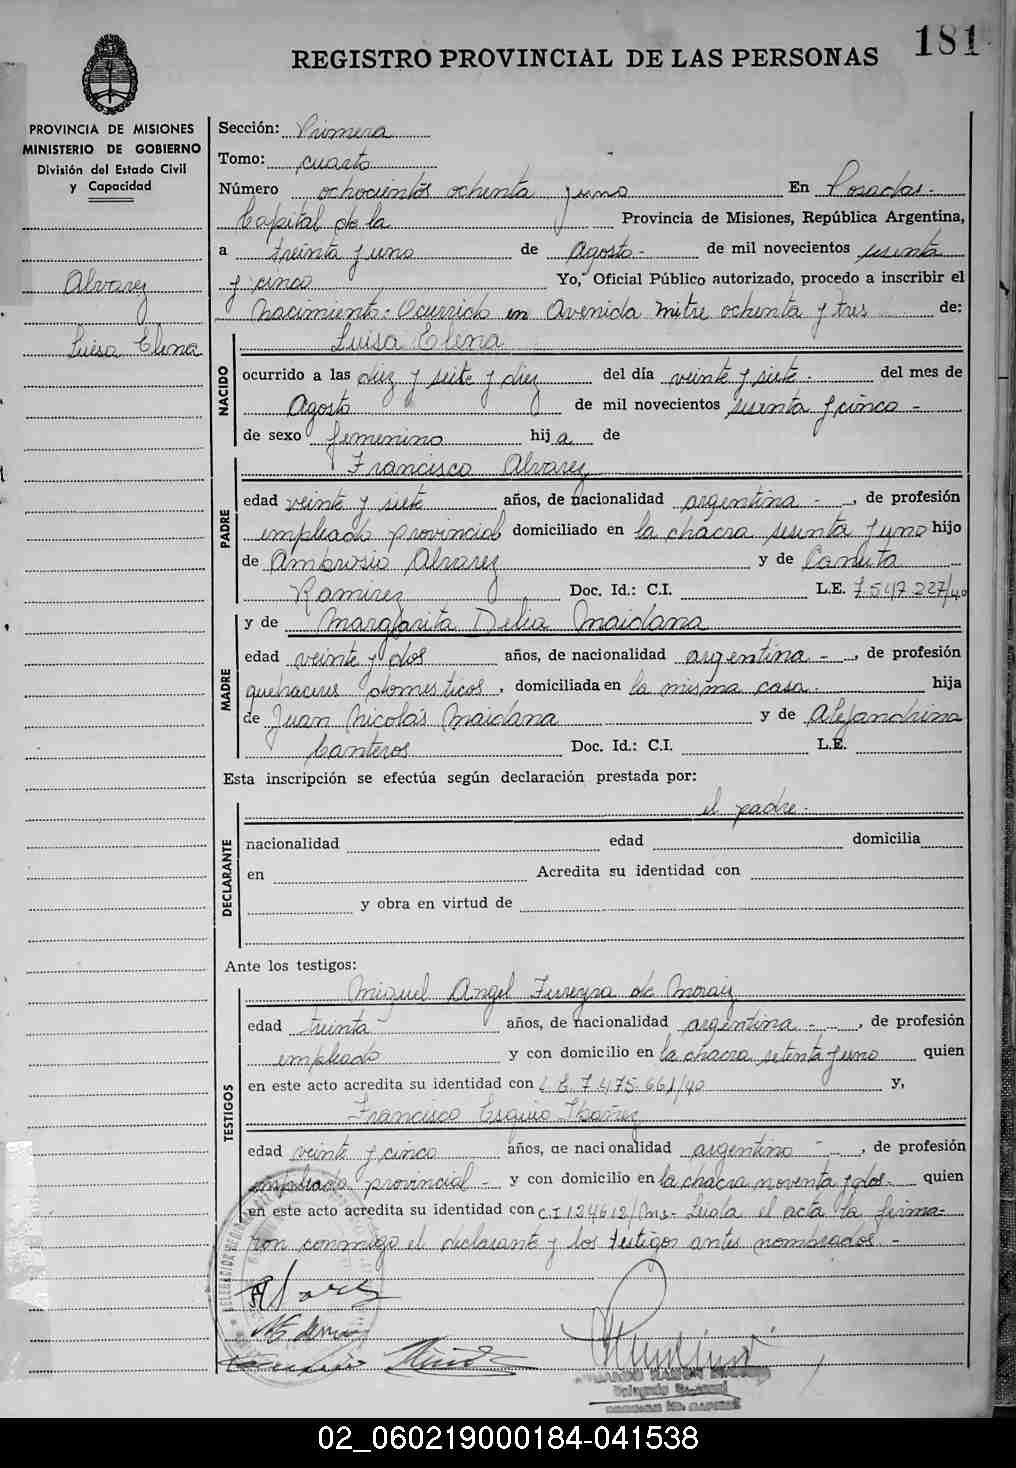 181
REGISTRO PROVINCIAL DE LAS PERSONAS
PROVINCIA DE MISIONES
MINISTERIO DE GOBIERNO
División del Estado Civil
y Capacidad
Alvarez
Luisa Elena
Sección: Primera
Tomo: cuarto
Número ochocientos ochenta y uno En Posadas.
Capital de la Provincia de Misiones, República Argentina,
a treinta y uno de Agosto - de mil novecientos sesenta
y cinco Yo, Oficial Público autorizado, procedo a inscribir el
Nacimiento. Ocurrido en Avenida Mitre ochenta y tres de:
NACIDO
Luisa Elena
ocurrido a las diez y siete y diez del día veinte y siete - del mes de
Agosto de mil novecientos sesenta y cinco -
de sexo femenino hija de
PADRE
Francisco Alvarez
edad veinte y siete años, de nacionalidad argentina - , de profesión
empleado provincial domiciliado en la chacra sesenta y uno hijo
de Ambrosio Alvarez y de Canuta
Ramirez Doc. Id.: C.I. L.E. 7.547.227/40
MADRE
y de Margarita Delia Maidana
edad veinte y dos años, de nacionalidad argentina - , de profesión
quehaceres domesticos, domiciliada en la misma casa. hija
de Juan Nicolás Maidana y de Alejandrina
Canteros Doc. Id.: C.I. L.E.
Esta inscripción se efectúa según declaración prestada por:
DECLARANTE
el padre.
nacionalidad edad domicilia
en Acredita su identidad con
y obra en virtud de
Ante los testigos:
TESTIGOS
Miguel Angel Ferreyra de Moraiz
edad treinta años, de nacionalidad argentina - , de profesión
empleado y con domicilio en la chacra setenta y uno quien
en este acto acredita su identidad con L.E. 7.475.661/40 y,
Francisco Ibañez
edad veinte y cinco años, de nacionalidad argentino - , de profesión
empleado provincial - y con domicilio en la chacra noventa y dos - quien
en este acto acredita su identidad con C.I 124612/Ms- Leida el acta la firma-
ron conmigo el declarante y los testigos antes nombrados -
02_060219000184-041538